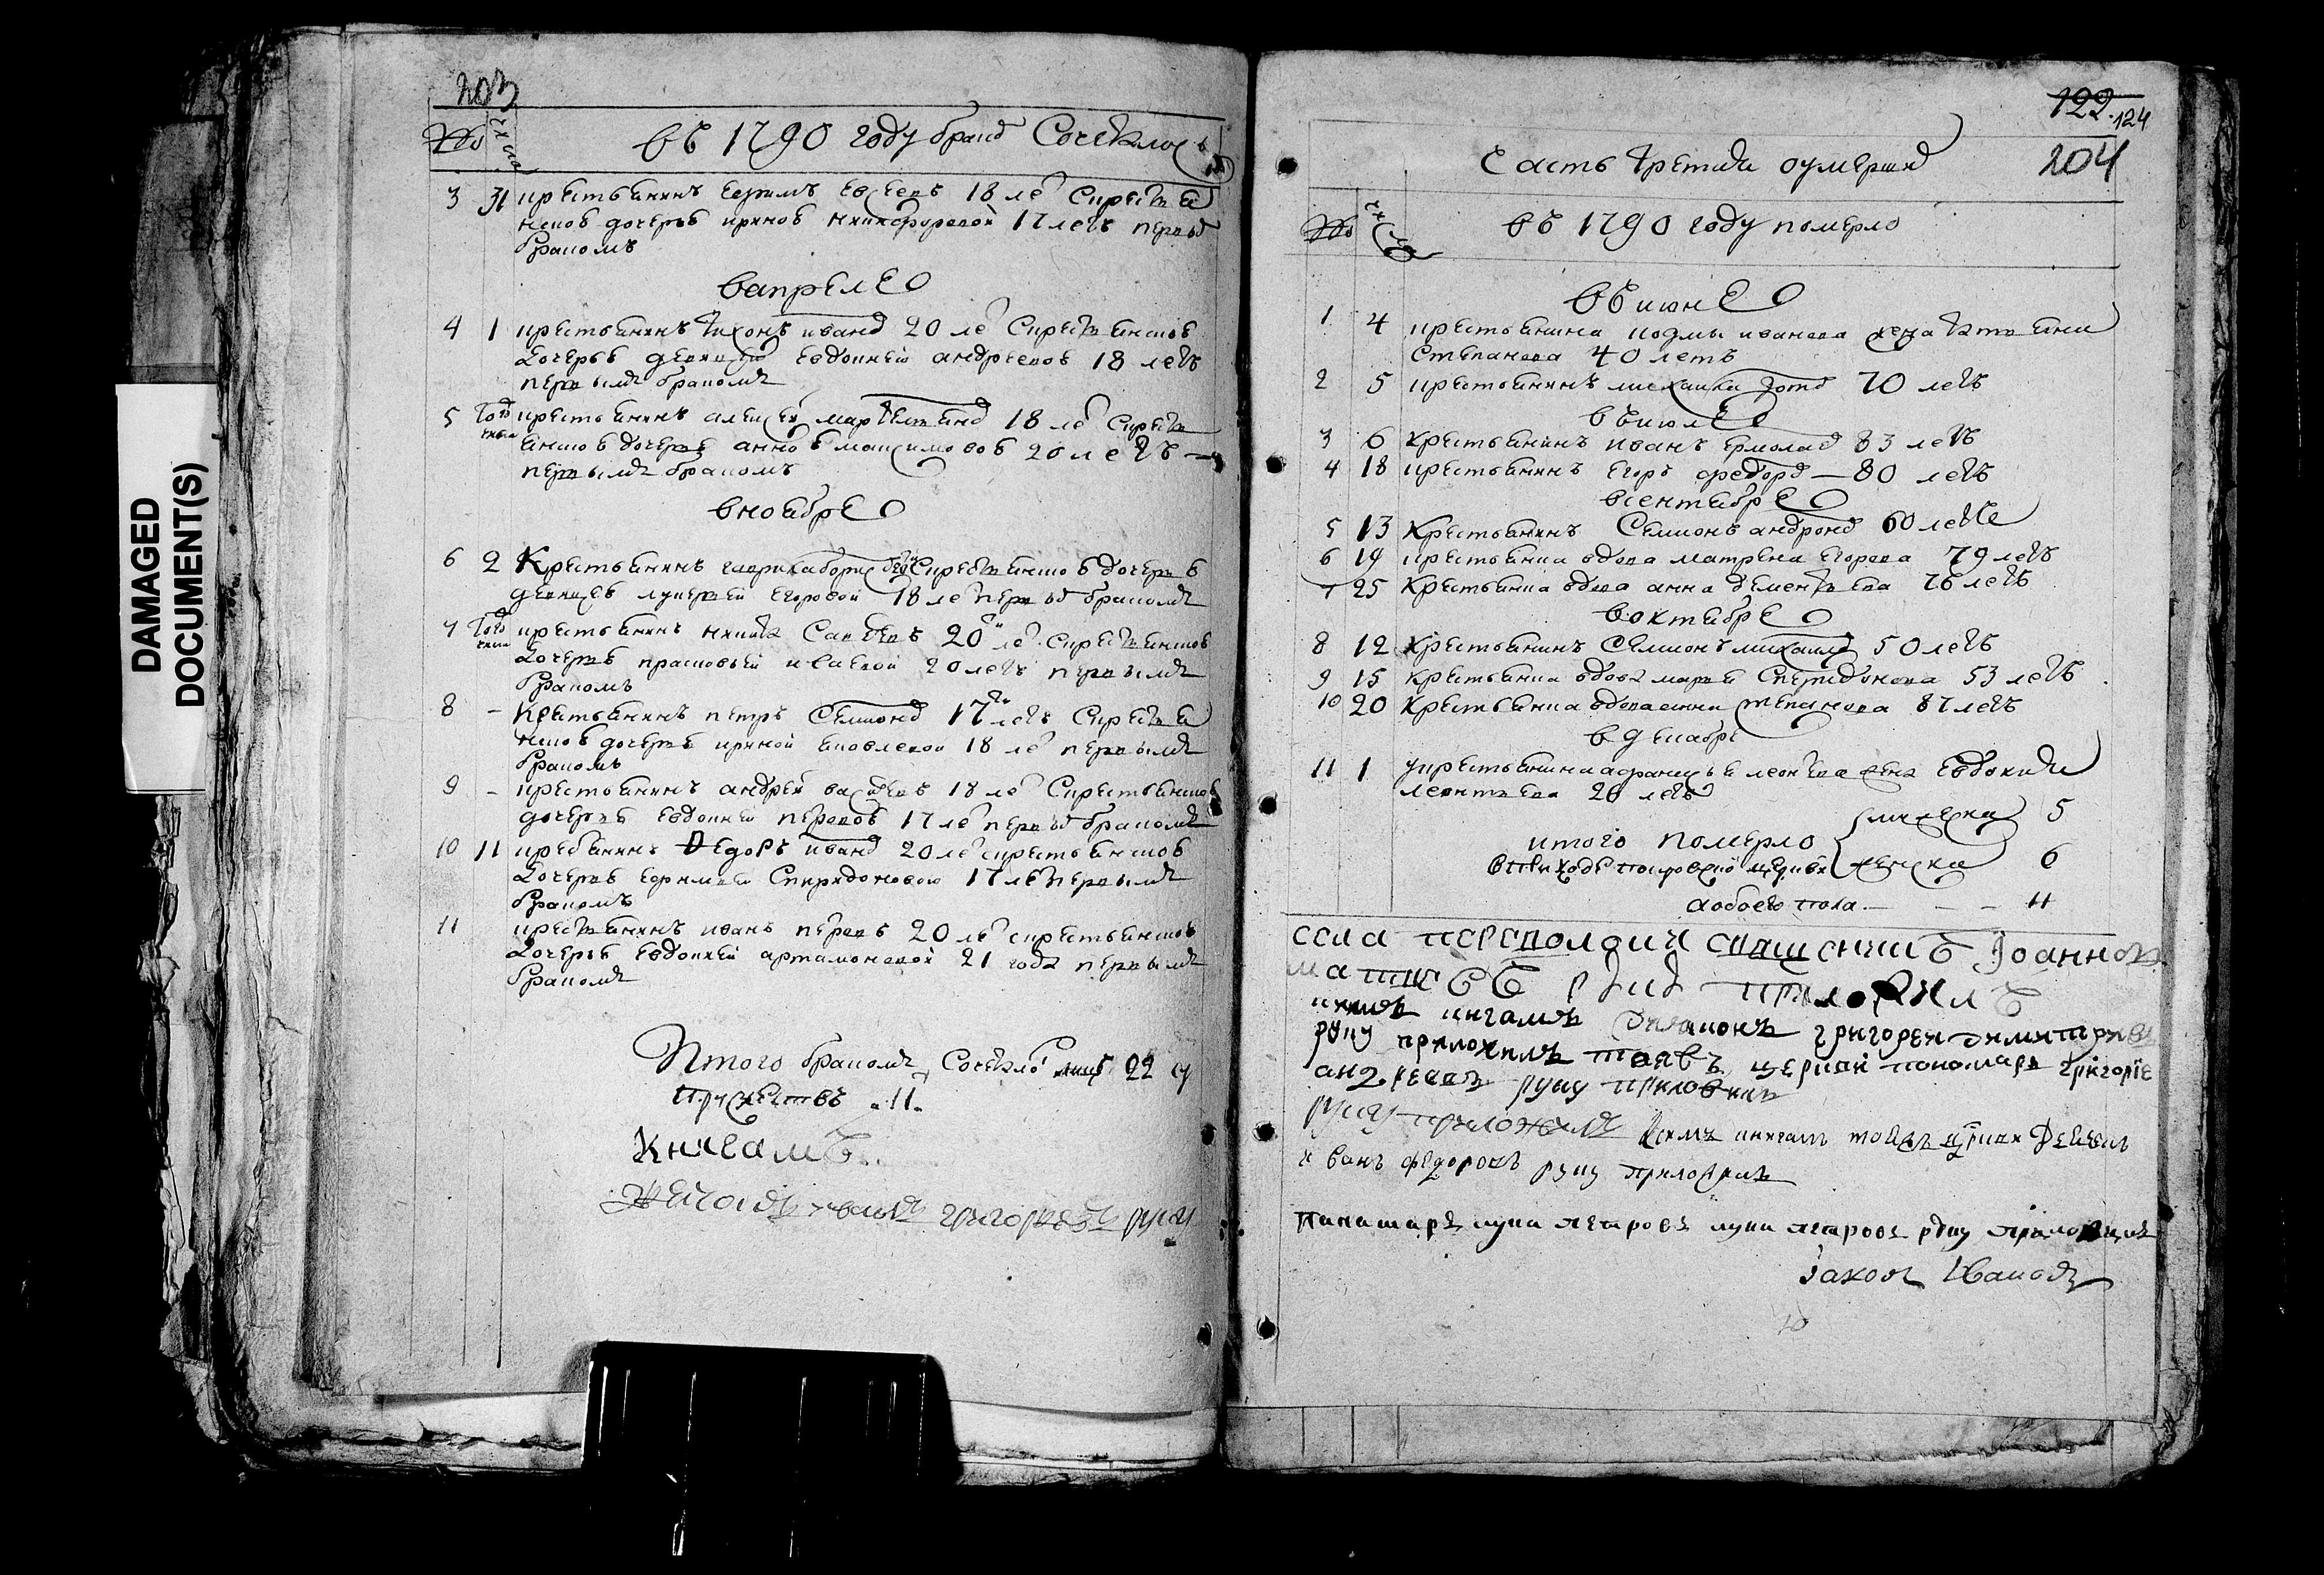 DAMAGED
DOCUMENT(S)
203
№ число
въ 1790 году брако Сочеталось
3 31 крестьянинъ Ефимъ Евсеевъ 18 ле С крестья
нскою дочерью ириною никифоровой 17 летъ первы
бракомъ
в апреле
4 1 крестьянинъ тихонъ ивано 20 ле С крестьянскою
дочерью девицею Евдокией андреевою 18 летъ
первымъ бракомъ
5 того числа крестьянинъ алексей мартемьяно 18 ле С кресть
янскою дочерью анною максимовою 20 летъ —
первымъ бракомъ
в ноябре
6 2 Крестьянинъ гаврила С крестьянскою дочерью
девицею лукерьей Егоровой 18 ле первы бракомъ
7 того числа крестьянинъ никита Савельевъ 20 ле С крестьянскою
дочерью прасковьей исаевой 20 летъ первымъ
бракомъ
8 - крестьянинъ петръ Семионо 17 летъ С крестья
нскою дочерью ириной яковлевой 18 ле первымъ
бракомъ
9 - крестьянинъ андрей васильевъ 18 ле С крестьянскою
дочерью Евдокией петровою 17 ле первы бракомъ
10 11 крестьянинъ Федоръ ивано 20 ле С крестьянскою
дочерью Спиридоновою 17 ле первымъ
бракомъ
11 крестьянинъ иванъ петровъ 20 ле С крестьянскою
дочерью Евдокией артамоновой 21 года первымъ
бракомъ
Итого бракомъ Сочетало 22 а
супружествъ 11.
Книгамъ
григорьевъ руку
122. 124
204
Часть третия о умерши
№ число
въ 1790 году померло
въ июне
1 4 крестьянина козмы иванова жена татьяна
Степанова 40 летъ
2 5 крестьянинъ михаила 70 летъ
въ июле
3 6 Крестьянинъ иванъ Ермолае 83 летъ
4 18 крестьянинъ Егоръ федоро — 80 летъ
в сентябре
5 13 Крестьянинъ Семионъ андроно 60 летъ
6 14 крестьянка вдова матрена Егорова 79 летъ
7 25 Крестьянка вдова анна дементьева 76 летъ
в октябре
8 12 Крестьянинъ Семионъ михаило 50 летъ
9 15 Крестьянка вдова марья Спиридонова 53 летъ
10 20 Крестьянка вдова степанова 87 летъ
в декабре
11 1 у крестьянина леонтева жена Евдокия
леонтьева 26 летъ
мужеска 5
итого померло
в приходе покровской церкви женска 6
а обоего пола — — — 11
села священникъ Иоаннъ
руку приложилъ
к симъ книгамъ диаконъ григорей димитриевъ
руку приложилъ тоявъ церкви пономарь григорие
андреевъ руку приложилъ
руку приложилъ к симъ книгам тоявъ церкви
иванъ федоровъ руку приложилъ
панамарь лука петровъ лука петровъ руку приложилъ
Iаковъ Ивановъ